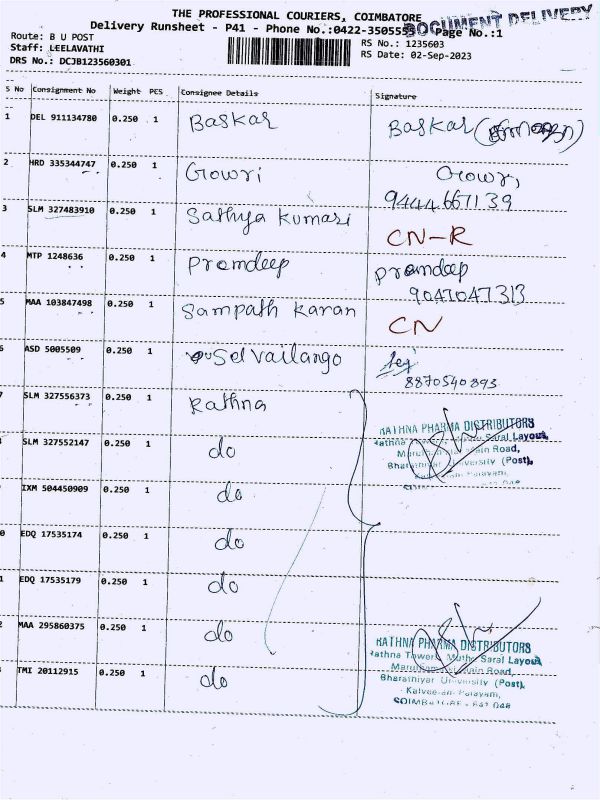 THE PROFESSIONAL COURIERS, COIMBATORE
DOCUMENT DELIVERY
Delivery Runsheet - P41 - Phone No.:0422-3505553 Page No.:1
Route: B U POST
RS No.: 1235603
Staff: LEELAVATHI
RS Date: 02-Sep-2023
DRS No.: DCJB123560301
S No Consignment No Weight PES Consignee Details Signature
1 DEL 911134780 0.250 1 Baskar Baskar
2 HRD 335344747 0.250 1 Gowri Gowri,
9444667139
3 SLM 327483910 0.250 1 Sathya Kumari CN-R
4 MTP 1248636 0.250 1 Pramdeep Pramdeep
9047047313
5 MAA 103847498 0.250 1 Sampath Karan CN
6 ASD 5005509 0.250 1 Selvailango
8870540393
7 SLM 327556373 0.250 1 Rathna
RATHNA PHARMA DISTRIBUTORS
Rathna Towers, Muthu Saral Layout,
Main Road,
Bharathiyar University (Post),
SLM 327552147 0.250 1 do
IXM 504450909 0.250 1 do
0 EDQ 17535174 0.250 1 do
1 EDQ 17535179 0.250 1 do
2 MAA 295860375 0.250 1 do
RATHNA PHARMA DISTRIBUTORS
Rathna Towers, Muthu Saral Layout,
Main Road,
Bharathiyar University (Post),
COIMBATORE - 641 046
3 TMI 20112915 0.250 1 do